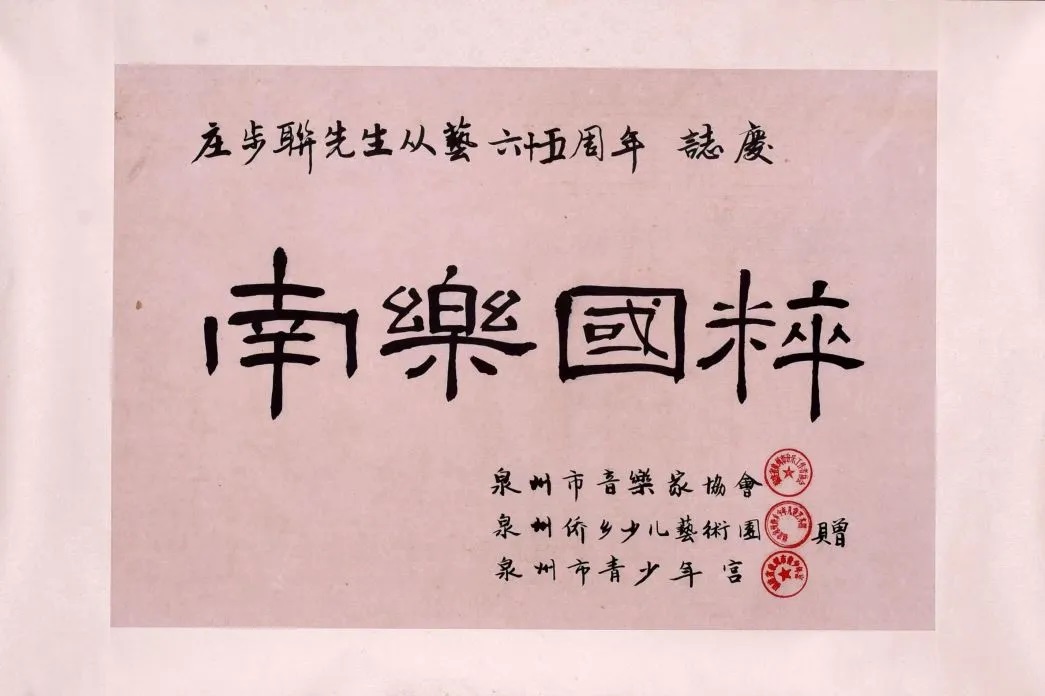 庄步聯先生从藝六十五周年 誌慶
南樂國粹
泉州市音樂家協會
泉州侨乡少儿藝術園 贈
泉州市青少年宫